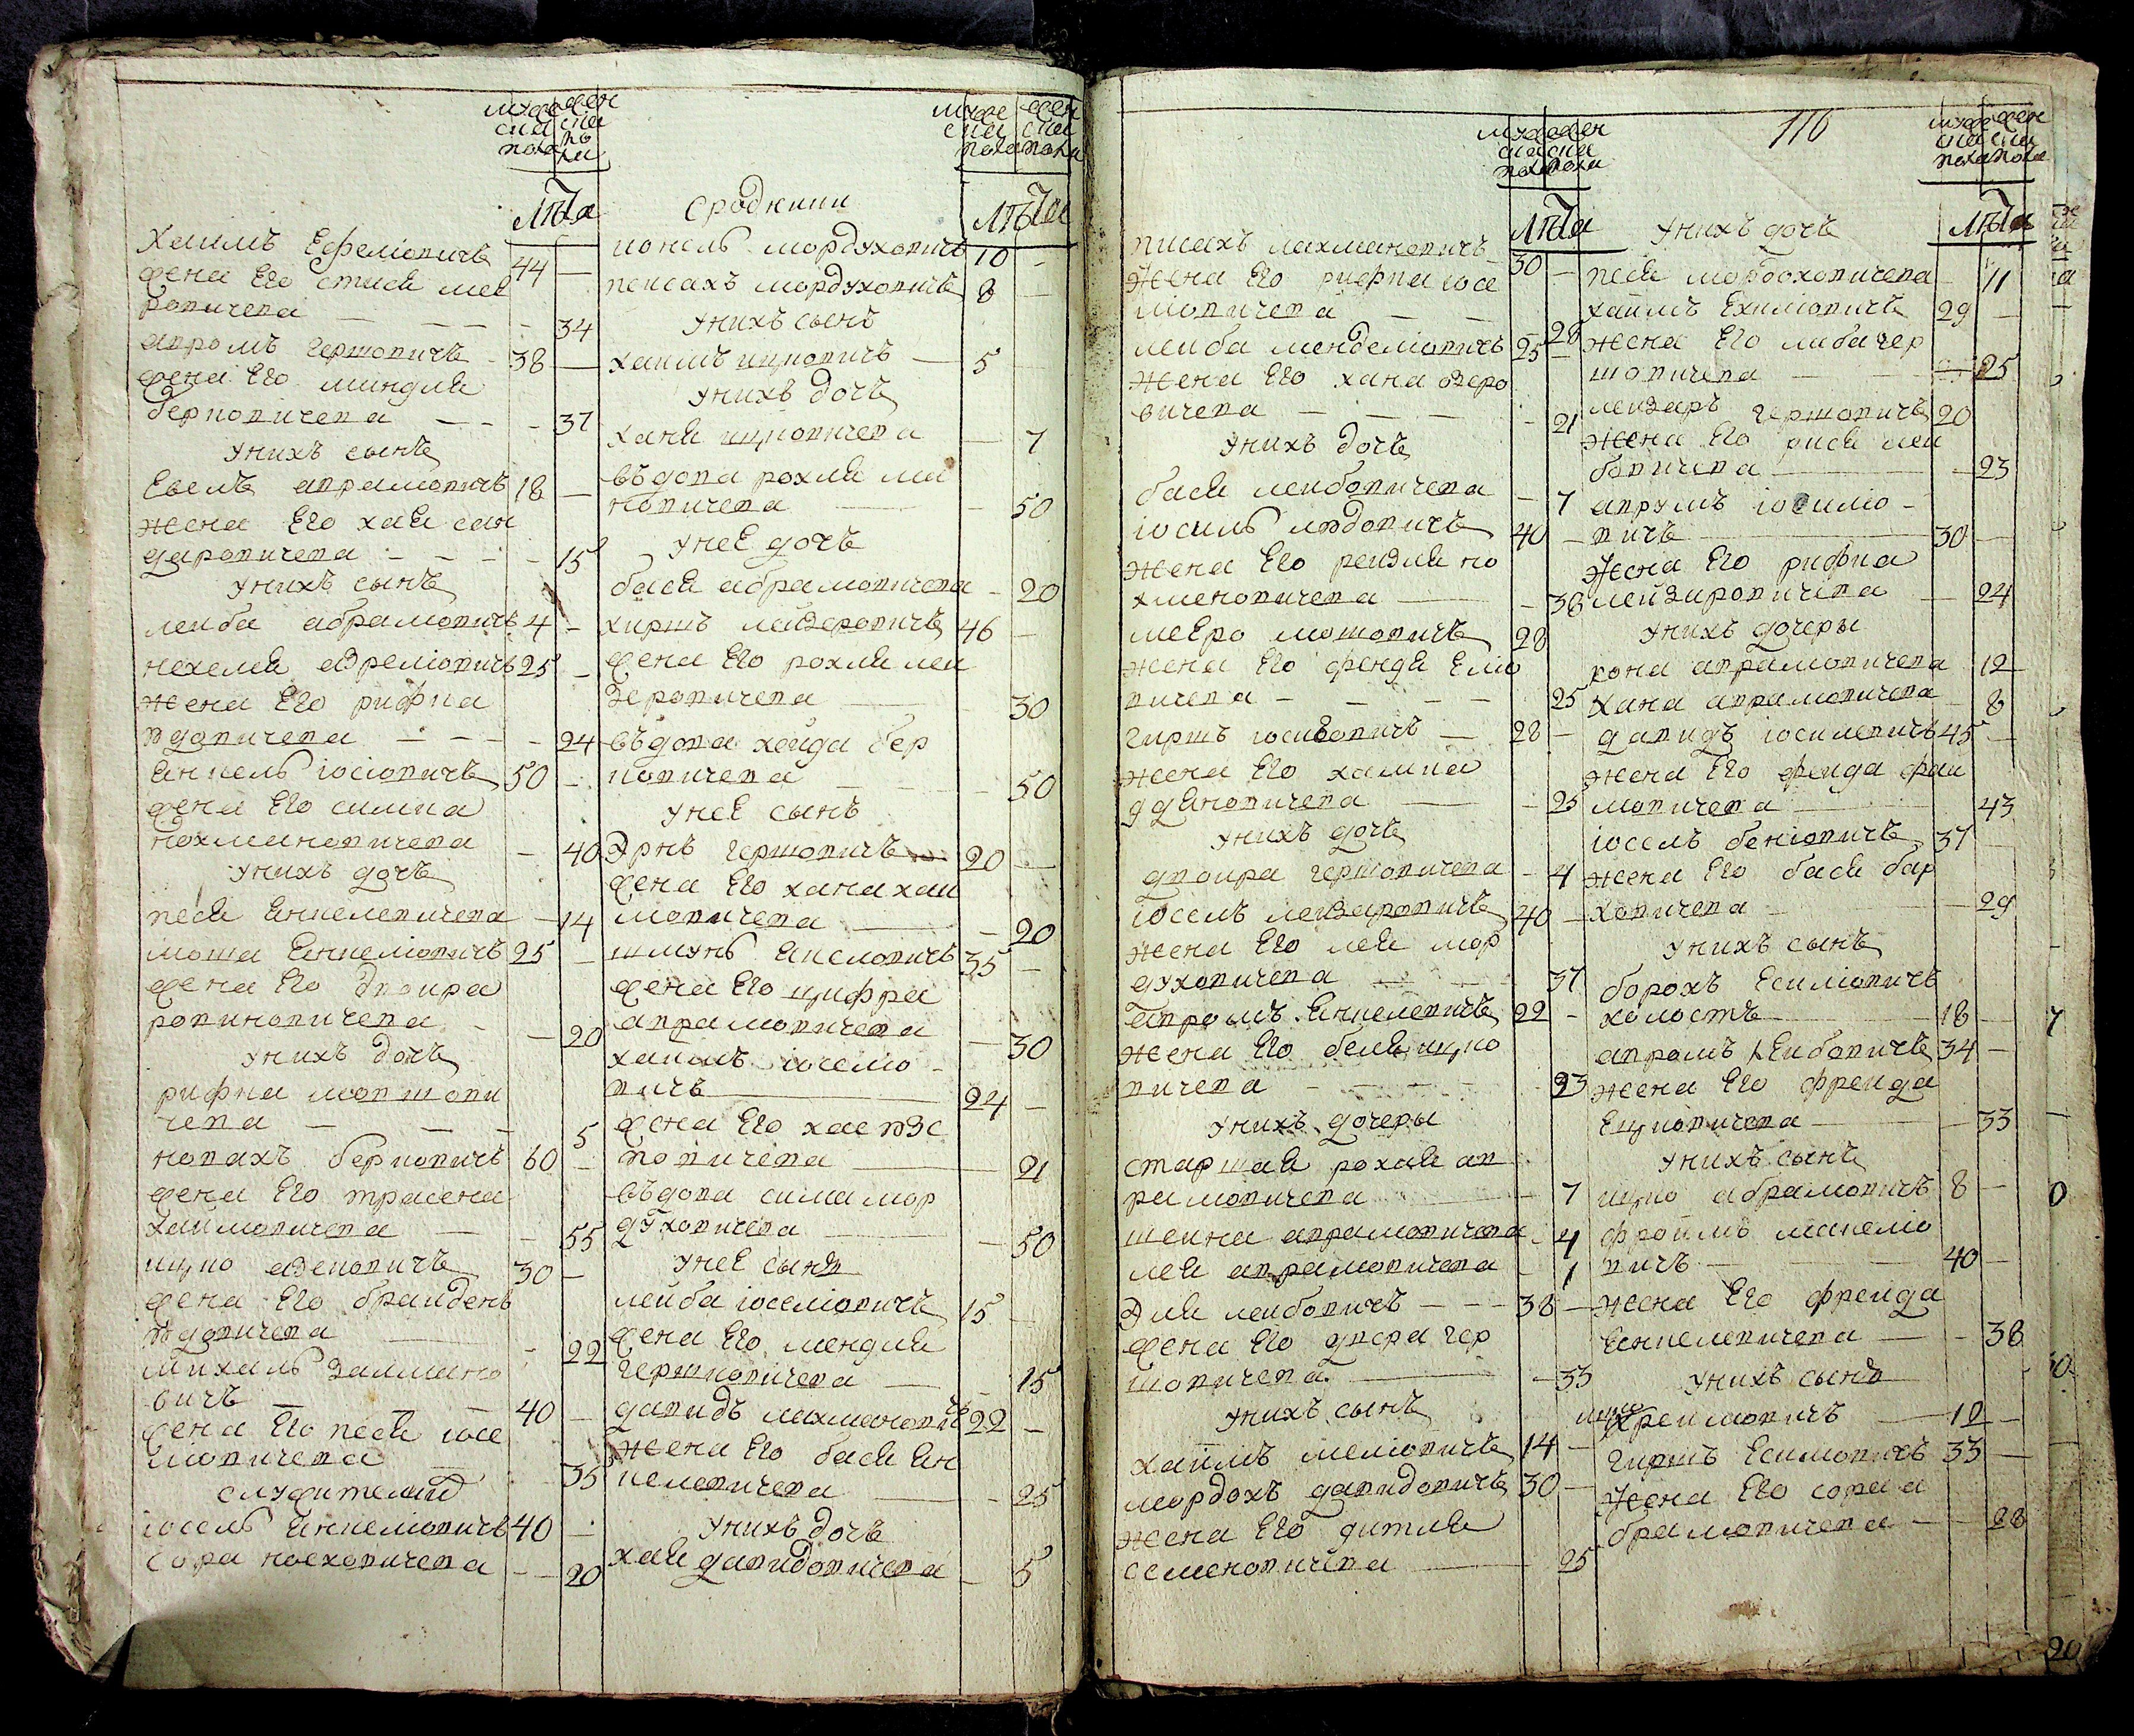 мужеска пола
женска пола
лѣта
Хаимъ Ефеліовичъ 44
жена Его стися мее
ровичева 34
авромъ гершовичъ 38
жена Его миндля
берковичева 37
у нихъ сынъ
Евель аврамовичъ 18
жена Его хая сан
даровичева 15
у нихъ сынъ
лейба абрамовичъ 4
нехемея 25
жена Его рифка
юдовичева 24
янкель іосіовичъ 50
жена Его симка
нохмановичева 40
у нихъ дочь
песя янкелевичева 14
моша янкеліовичъ 25
жена Его двоира
ровиновичева 20
у нихъ дочь
рифка мовшови
чева 5
новахъ берковичъ 60
жена Его
хаимовичева 55
ицко 30
жена Его брайдель
юдовичева 22
михаль залмано
вичъ 40
жена Его песя іосе
ліовичева 35
служителей
іосель янкеліовичъ 40
сора ноеховичева 20
мужеска пола
женска пола
лѣта
сродники
іонель мордуховичъ 10
пейсахъ мордуховичъ 8
у нихъ сынъ
хаимъ ицковичъ 5
у нихъ дочь
ханя ицковичева 7
въдова рохля ма
ковичева 50
у неЕ дочь
бася абрамовичева 20
хиршъ лейзеровичъ 46
жена Его рохля леи
зеровичева 30
въдова хайда бер
ковичева 50
у неЕ сынъ
гершовичъ 20
жена Его хана хаи
мовичева 20
шмуль 35
жена Его цифра
аврамовичева 30
хаимъ іосело
вичъ 24
жена Его хае юзе
повичева 21
въдова сима мор
духовичева 50
у неЕ сынъ
лейба іоселіовичъ 15
жена Его мендля
гершковичева 15
давидъ лахмановичъ 22
жена Его бася ян
келевичева 25
у нихъ дочь
хая давидовичева 5
мужеска пола
женска пола
лѣта
писахъ лахмановичъ 30
жена Его рифка іосе
ліовичева 28
лейба менделіовичъ 25
жена Его хана озеро
вичева 21
у нихъ дочь
бася лейбовичева 7
іосиль юдовичъ 40
жена Его рейзля но
хменовичева 38
меЕро мошовичъ 28
жена Его фейдя Еліо
вичева 25
гиршъ іосивовичъ 28
жена Его хаика
25
у нихъ дочь
двоира гершовичева 4
іосель лейзаровичъ 40
жена Его лея мор
духовичева 37
авромъ янкелевичъ 22
жена Его беля ицко
вичева 23
у нихъ дочеры
старшая рохля ав
рамовичева 7
шейна аврамовичева 4
лея аврамовичева 1
Эля лейбовичъ 38
жена Его двера гер
шовичева 33
у нихъ сынъ
хаймъ меліовичъ 14
мордохъ давидовичъ 30
жена Его дитля
семеновичева 25
116
мужеска пола
женска пола
лѣта
у нихъ дочь
песя мордоховичева 11
хаймъ Ехиліовичъ 29
жена Его либа гер
шовичева 25
лейзаръ гершовичъ 20
жена Его рися леи
бовичева 23
аврумъ іосиліо
вичъ 30
жена Его рифка
лейзировичева 24
у нихъ дочеры
рона аврамовичева 12
хана аврамовичева 8
давидъ іосилевичъ 45
жена Его фейда фаи
мовичева 43
іосель беніовичъ 37
жена Его бася бар
ховичева 29
у нихъ сынъ
борохъ Есиліовичъ
холостъ 18
авромъ лейбовичъ 34
жена Его фрейда
Ецковичева 33
у нихъ сынъ
ицко абрамовичъ 8
фроимъ манеліо
вичъ 40
жена Его фрейда
янкелевичева 38
у нихъ сынъ
ицко фреимовичъ 12
гиршъ Есимовичъ 33
жена Его сора а
брамовичева 28